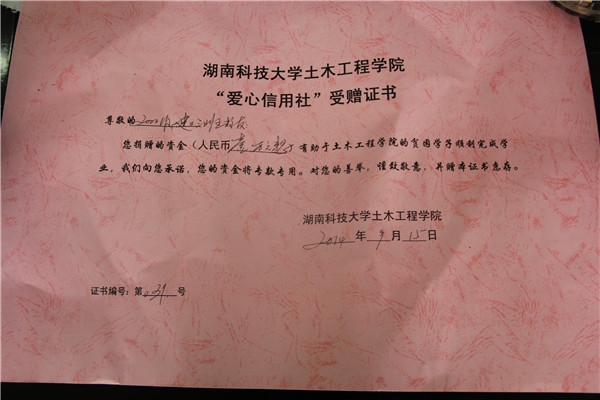 湖南科技大学土木工程学院
“爱心信用社”受赠证书
尊敬的2000级建三班全校友
您捐赠的资金（人民币壹万元整）有助于土木工程学院的贫困学子顺利完成学
业，我们向您承诺，您的资金将专款专用。对您的善举，谨致敬意，并赠本证书惠存。
湖南科技大学土木工程学院
2014 年 9 月 15 日
证书编号：第 031 号